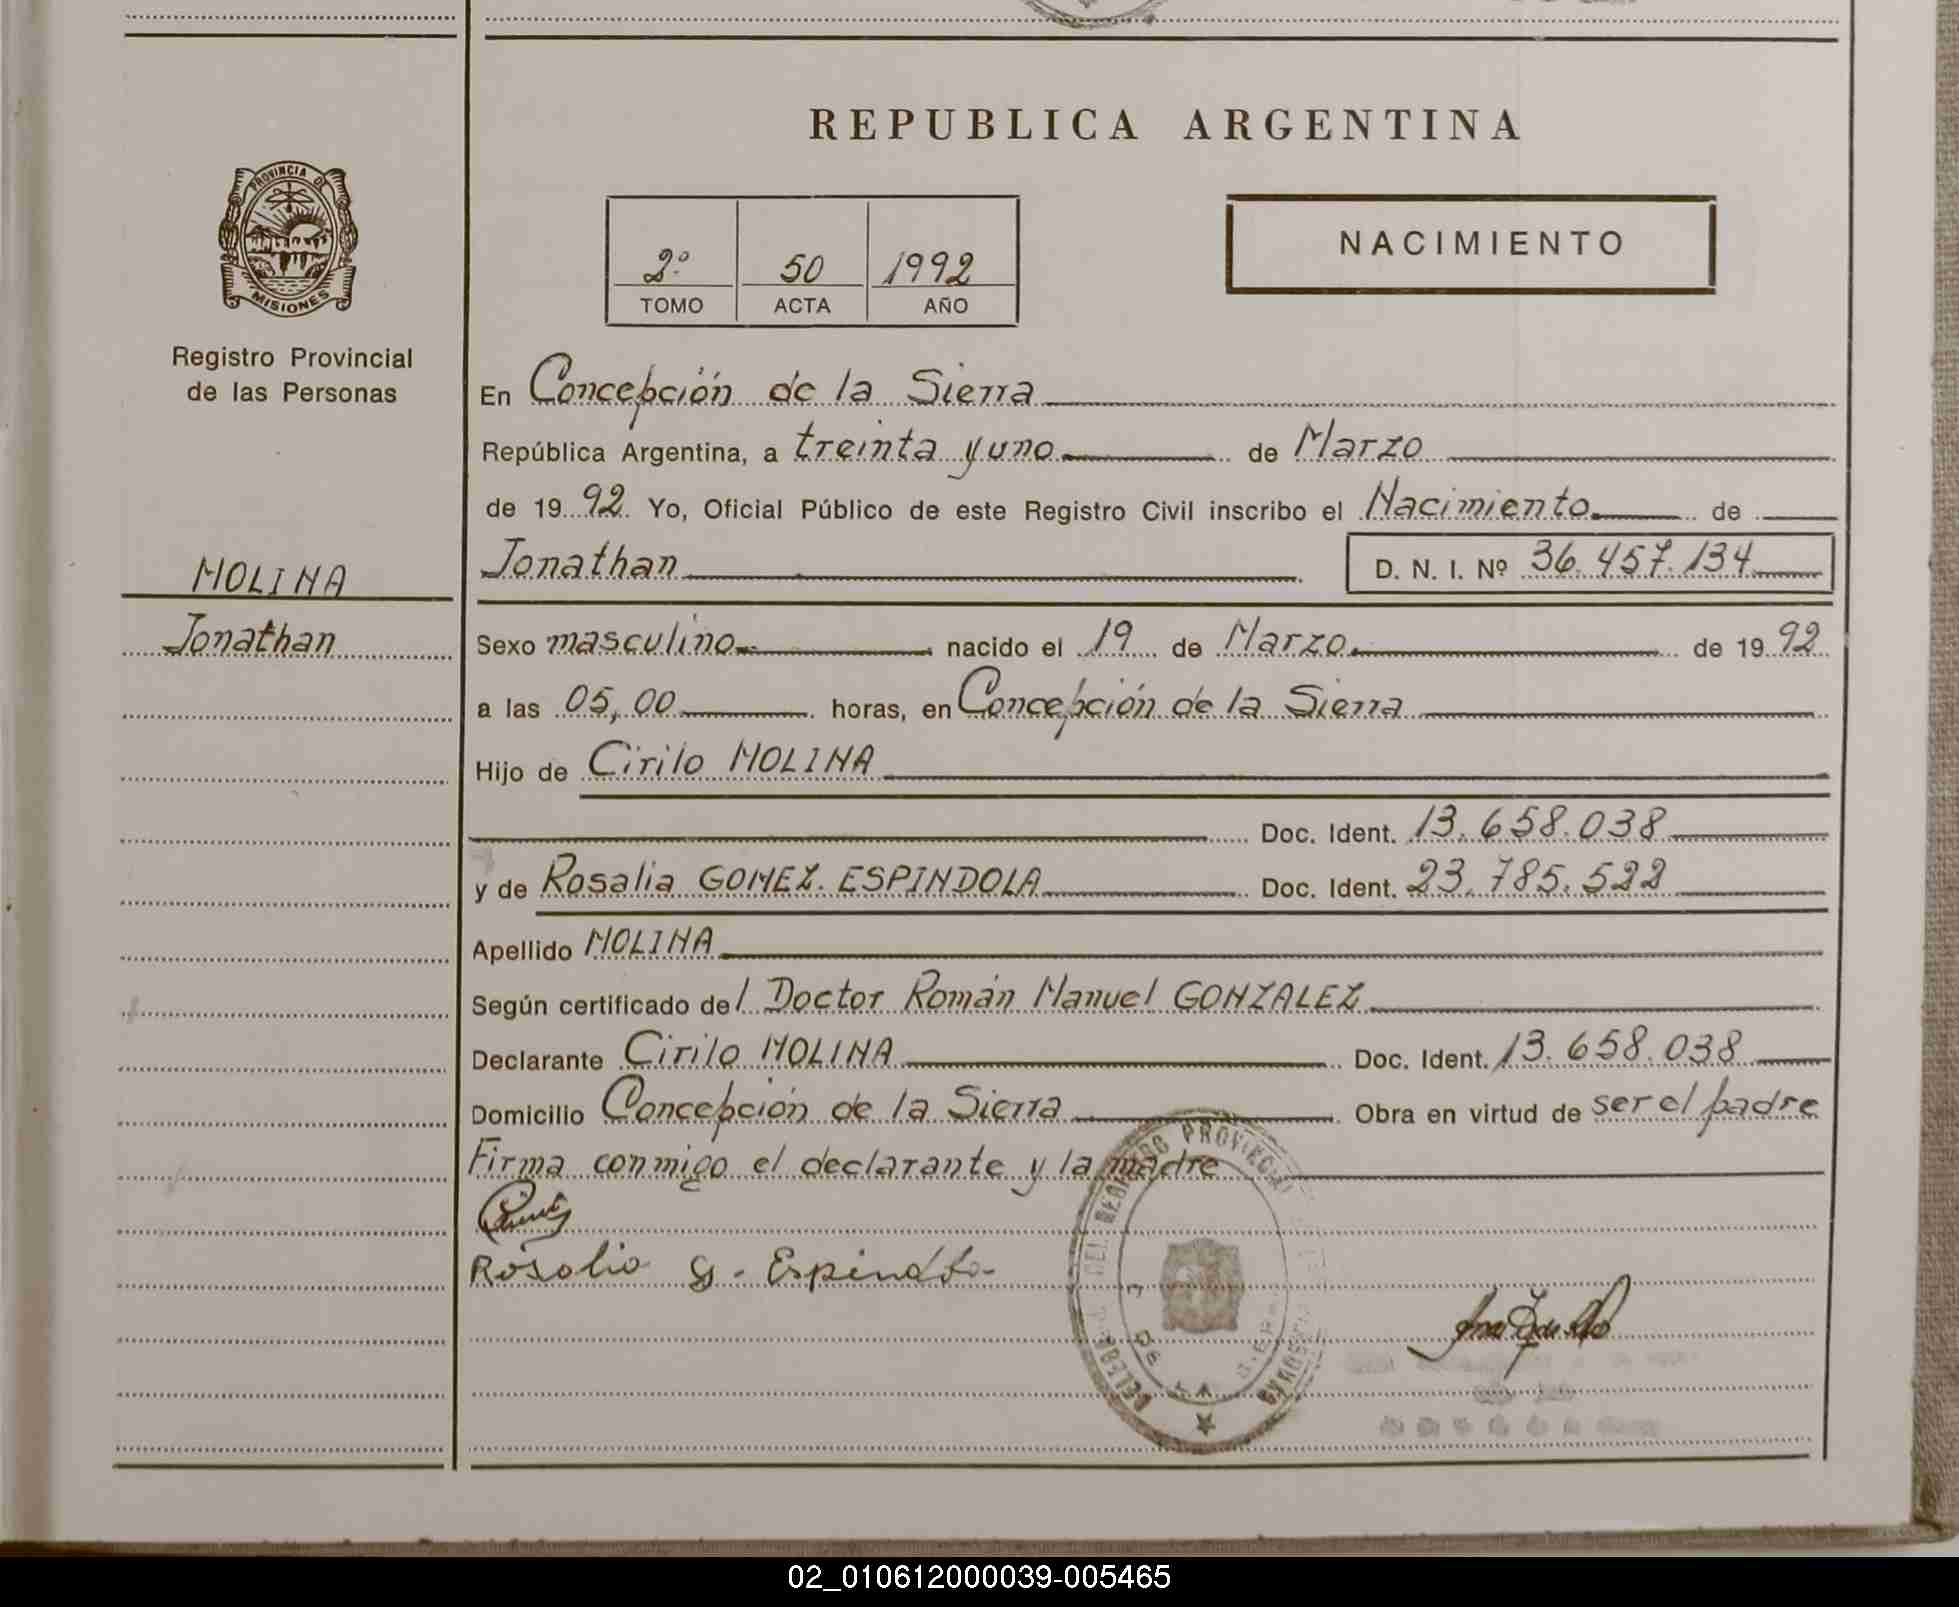 REPUBLICA ARGENTINA
PROVINCIA DE
MISIONES
Registro Provincial
de las Personas
2º 50 1992
TOMO ACTA AÑO
NACIMIENTO
MOLINA
Jonathan
En Concepción de la Sierra
República Argentina, a treinta y uno de Marzo
de 1992 Yo, Oficial Público de este Registro Civil inscribo el Nacimiento de
Jonathan D. N. I. Nº 36.457.134
Sexo masculino nacido el 19 de Marzo de 1992
a las 05,00 horas, en Concepción de la Sierra
Hijo de Cirilo MOLINA
Doc. Ident. 13.658.038
y de Rosalia GOMEZ ESPINDOLA Doc. Ident. 23.785.522
Apellido MOLINA
Según certificado del Doctor Román Manuel GONZALEZ
Declarante Cirilo MOLINA Doc. Ident. 13.658.038
Domicilio Concepción de la Sierra Obra en virtud de ser el padre
Firma conmigo el declarante y la madre
Rosalia G. Espindola
DEL REGISTRO PROVINCIAL
02_010612000039-005465